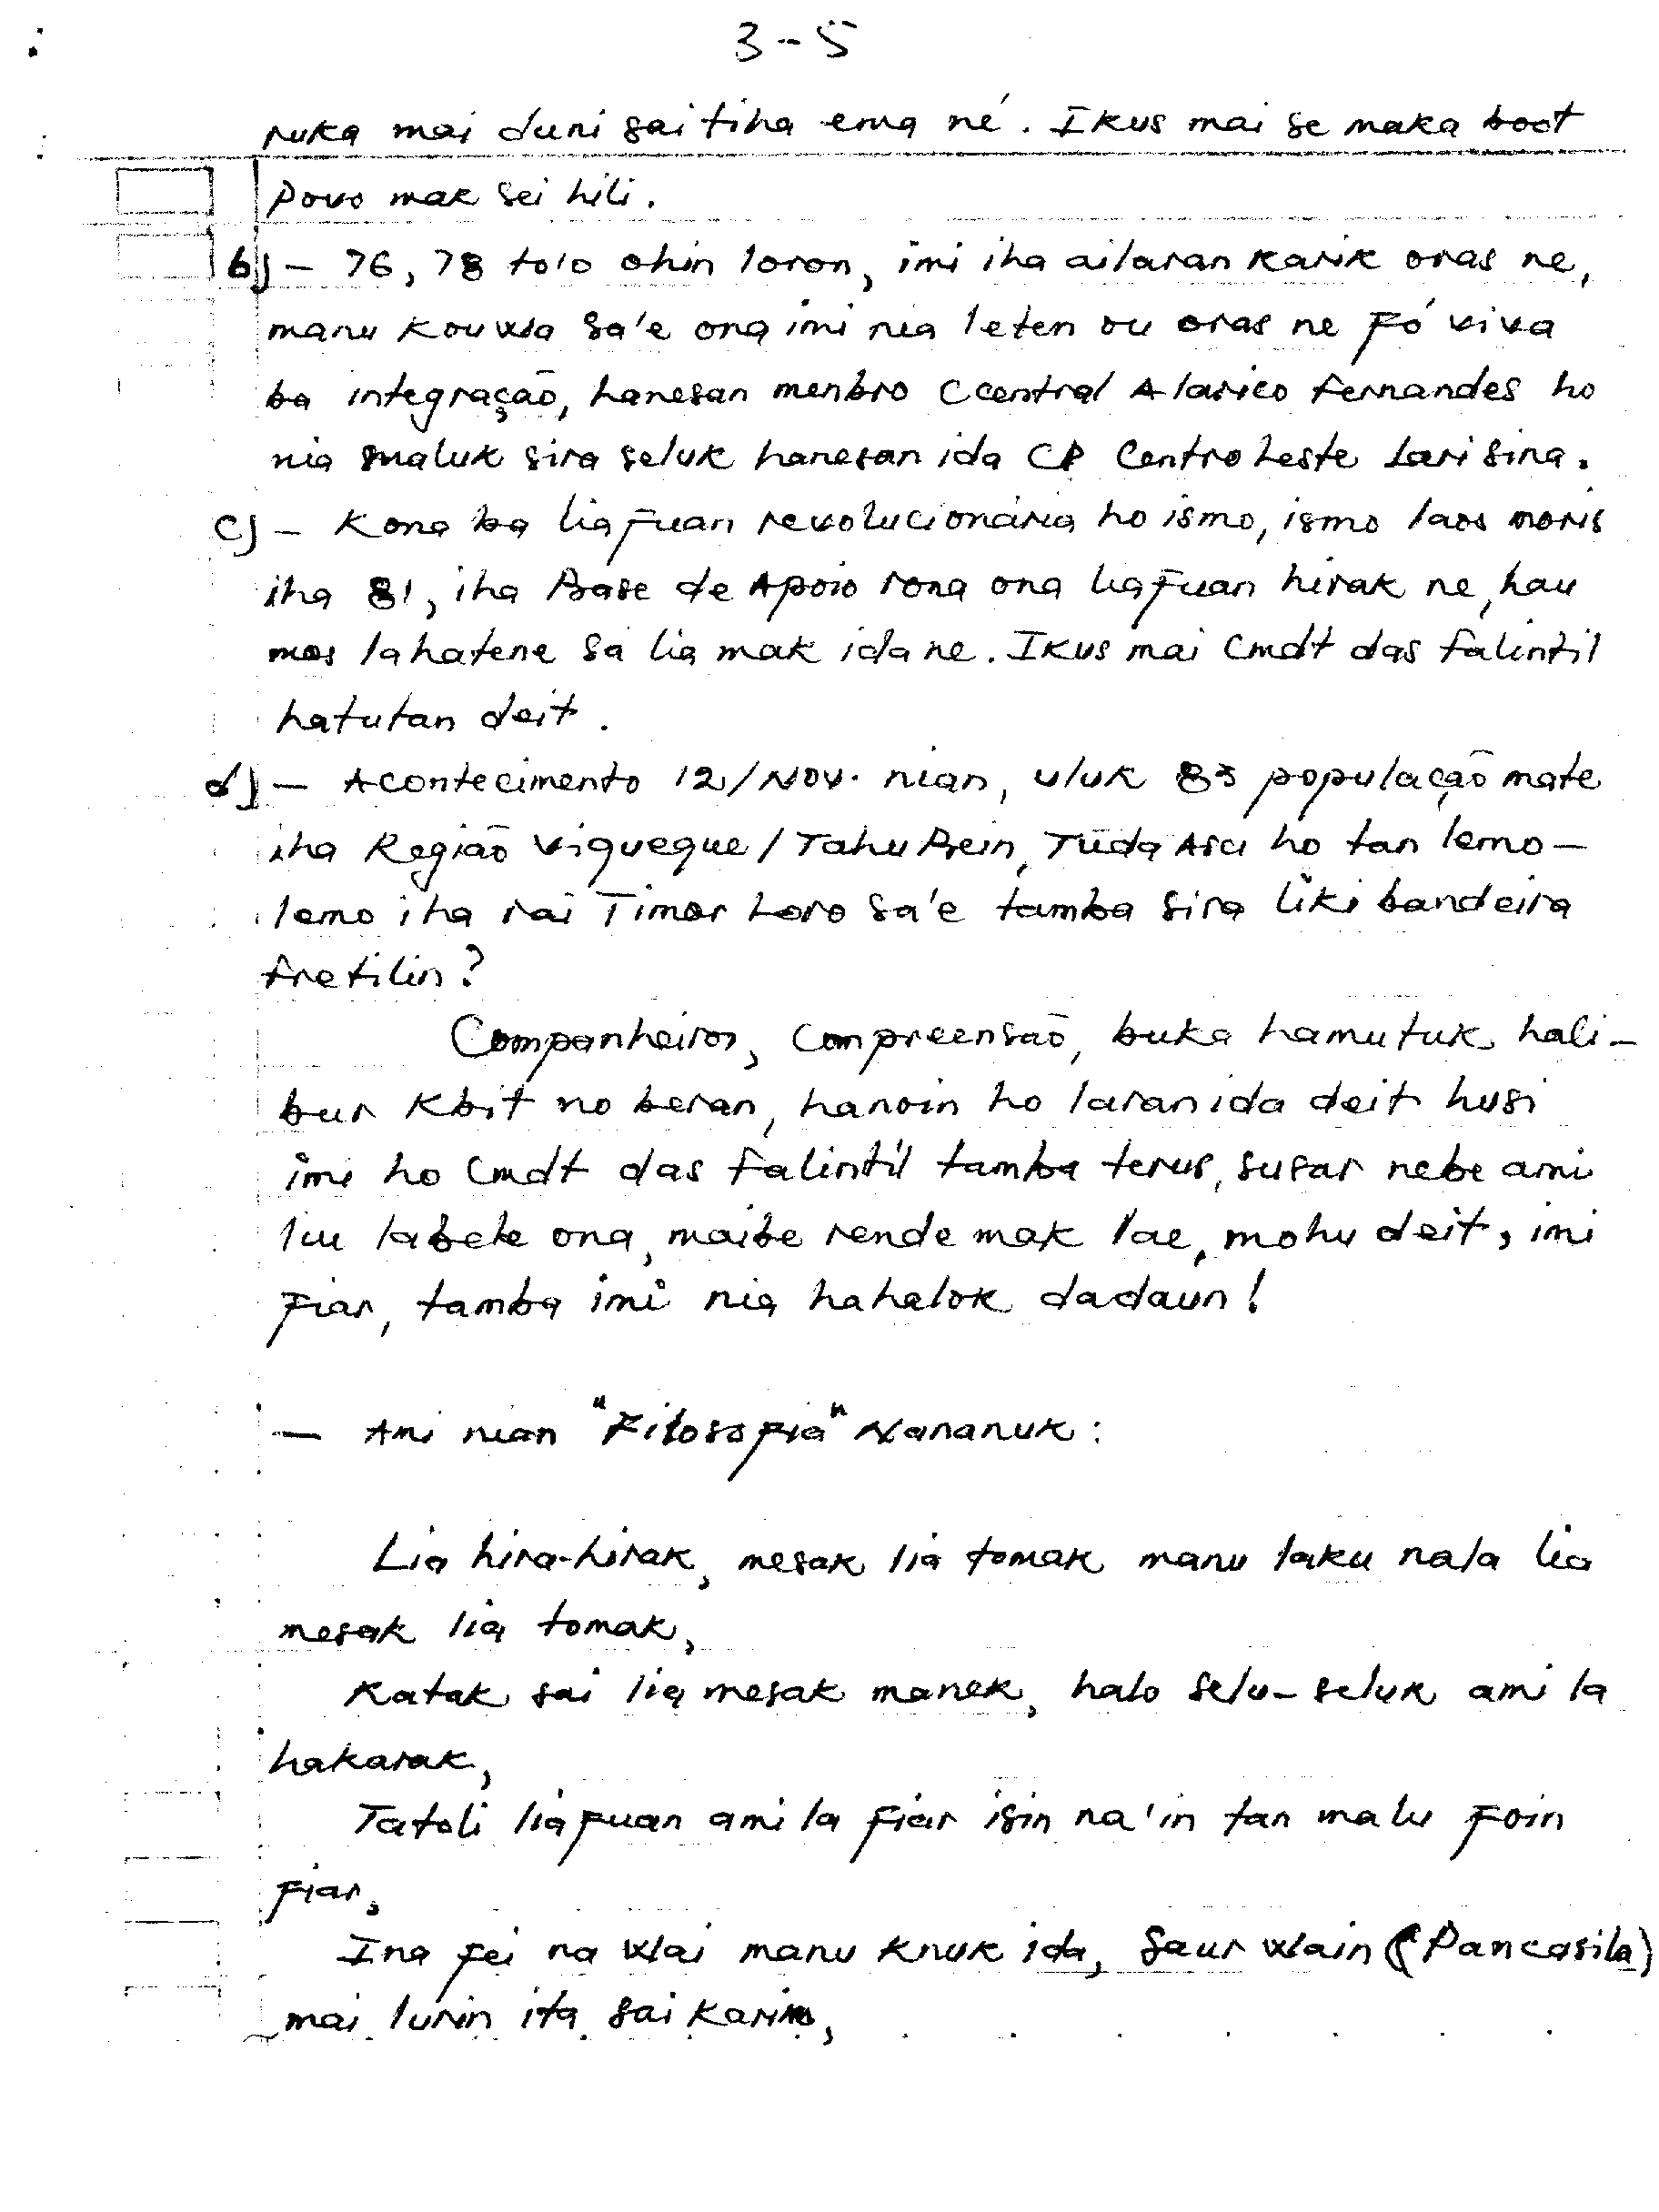 3-5
ruka mai duni sai tiha ema né. Ikus mai se maka boot
Povo mak sei hili.
b) - 76, 78 tolo ohin loron, imi iha ailaran karik oras ne,
manu kouwa sa'e ona imi nia leten ou oras ne fó viva
ba integração, hanesan menbro Ccentral Alarico Fernandes ho
nia maluk sira seluk hanesan ida CP Centro Leste Lari Sina.
c) - Kona ba liafuan revolucionária ho ismo, ismo laos moris
iha 81, iha Base de Apoio rona ona liafuan hirak ne, hau
mos lahatene sa lia mak ida ne. Ikus mai Cmdt das Falintil
hatutan deit.
d) - Acontecimento 12/Nov. nian, uluk 83 população mate
iha Região Viqueque / Tahu Bein, Tuda Asu ho tan lemo-
lemo iha rai Timor Loro Sa'e tamba sira liki bandeira
Fretilin?
Companheiros, compreensão, buka hamutuk hali-
bur kbit no beran, hanoin ho laran ida deit husi
imi ho Cmdt das Falintil tamba terus, susar nebe ami
liu labele ona, maibe rende mak lae, mohu deit, imi
fiar, tamba imi nia hahalok dadaun!
- Ami nian "Filosofia" Nananuk:
Lia hira-hirak, mesak lia tomak manu laku nala lia
mesak lia tomak,
Katak sai lia mesak manek, halo selu-seluk ami la
hakarak,
Tatoli liafuan ami la fiar isin na'in tan malu foin
fiar,
Ina fei na wai manu knuk ida, saur wain (Pancasila)
mai lurin ita sai karin,